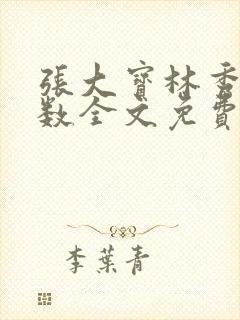 張大寶林秀
数全文免費
李葉青